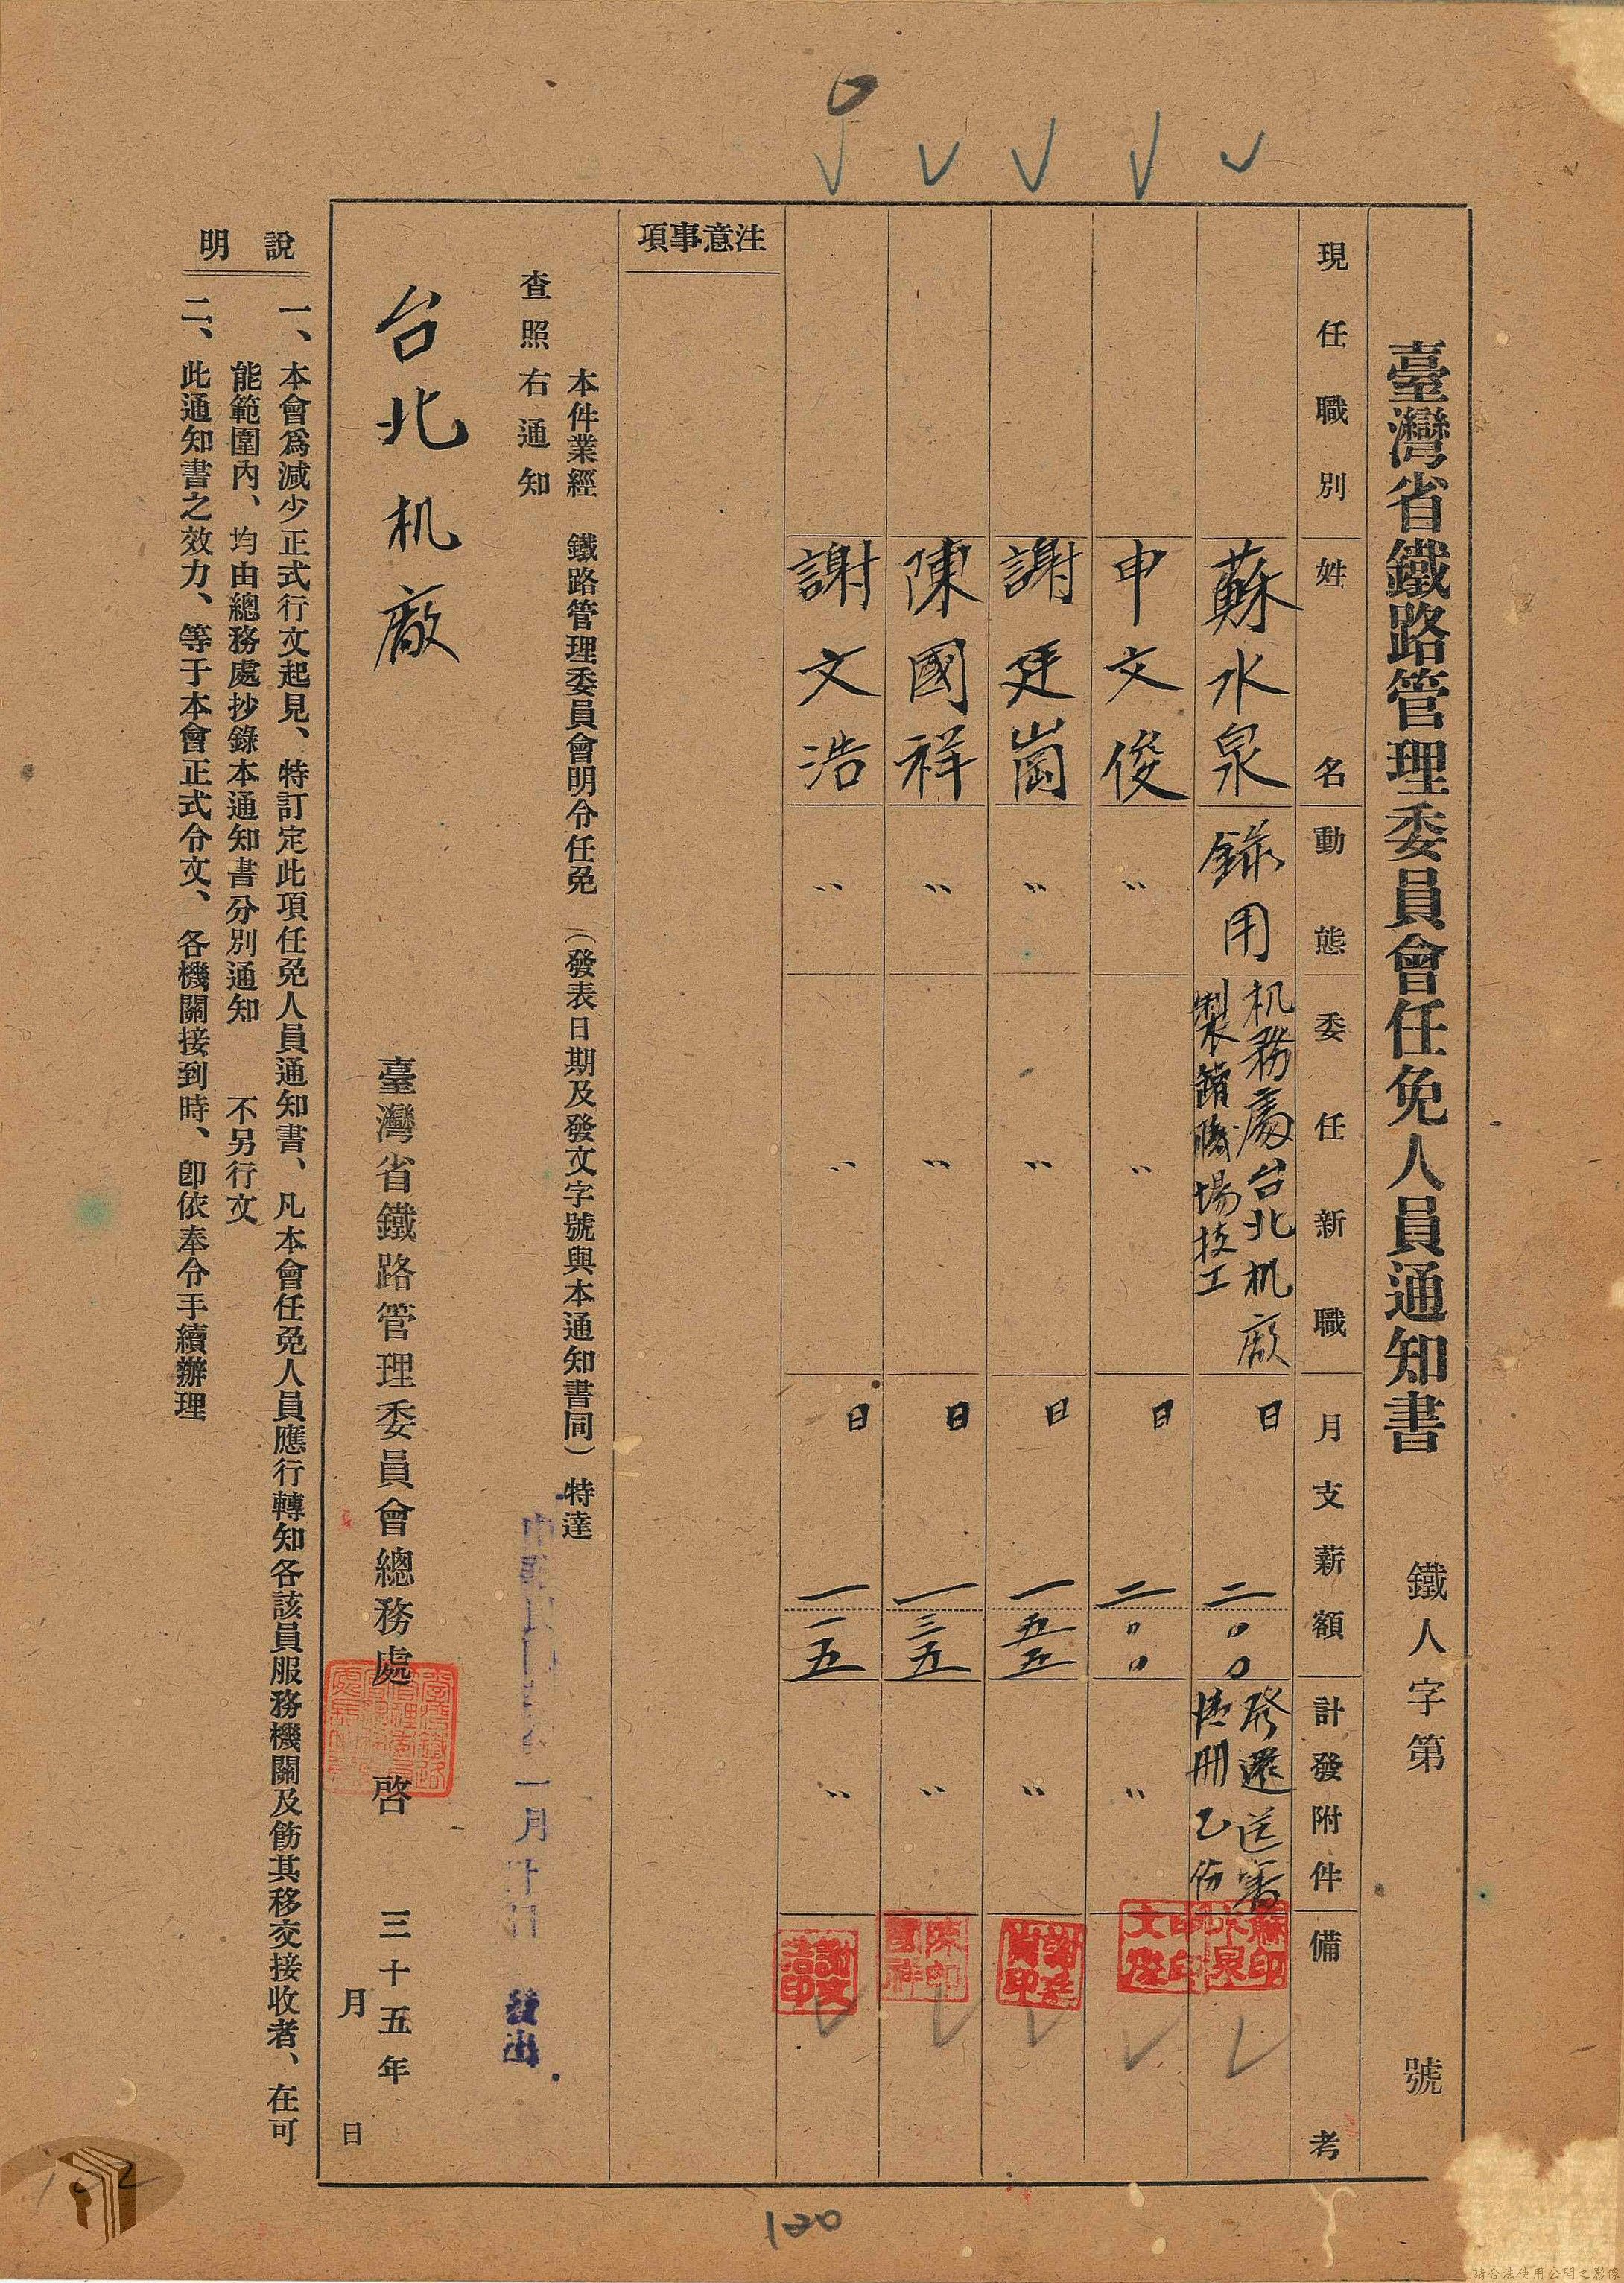 臺灣省鐵路管理委員會任免人員通知書 鐵人字第 號
現任職別 姓名 動態 委任新職 月支薪額 計發附件 備考
蘇水泉 錄用 机務處台北机廠
製罐職場技工 日 二〇〇 發還送審
乙份
申文俊 〃 〃 日 二〇〇 〃
謝廷崗 〃 〃 日 一五五 〃
陳國祥 〃 〃 日 一三五 〃
謝文浩 〃 〃 日 一一五 〃
注意事項
本件業經 鐵路管理委員會明令任免 (發表日期及發文字號與本通知書同) 特達
查照右通知
一月 發出
台北机廠
臺灣省鐵路管理委員會總務處 啓 三十五年
月 日
說明
一、本會爲減少正式行文起見、特訂定此項任免人員通知書、凡本會任免人員應行轉知各該員服務機關及飭其移交接收者、在可
能範圍內、均由總務處抄錄本通知書分別通知 不另行文
二、此通知書之效力、等于本會正式令文、各機關接到時、卽依奉令手續辦理
120
請合法使用公開之影像